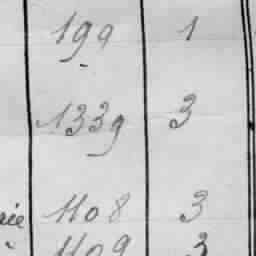 199 1
1339 3
1108 3
1109 3